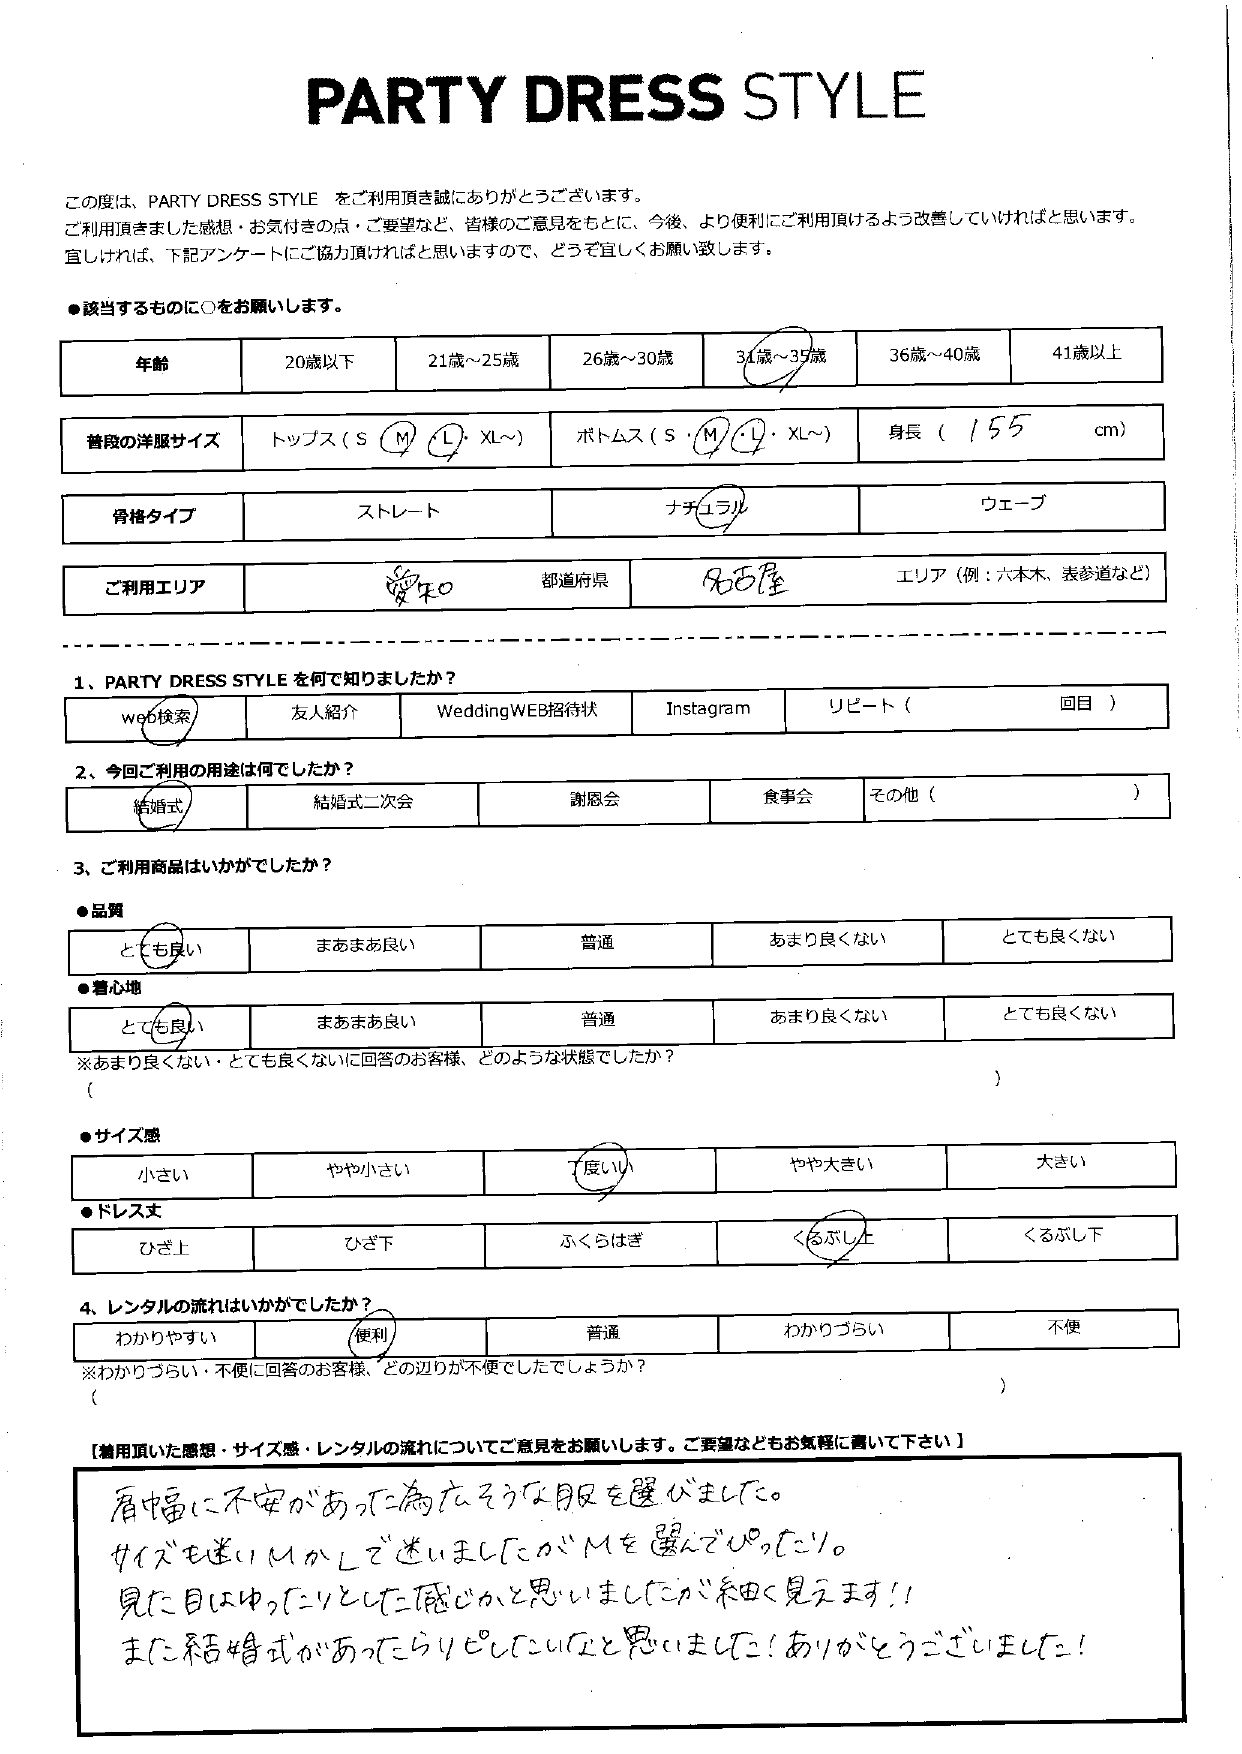 PARTY DRESS STYLE
この度は、PARTY DRESS STYLE をご利用頂き誠にありがとうございます。
ご利用頂きました感想・お気付きの点・ご要望など、皆様のご意見をもとに、今後、より便利にご利用頂けるよう改善していければと思います。
宜しければ、下記アンケートにご協力頂ければと思いますので、どうぞ宜しくお願い致します。
●該当するものに○をお願いします。
年齢 20歳以下 21歳～25歳 26歳～30歳 31歳～35歳 36歳～40歳 41歳以上
普段の洋服サイズ トップス（ S M L・ XL～） ボトムス（ S ・M ・L ・ XL～） 身長 （ 155 cm）
骨格タイプ ストレート ナチュラル ウェーブ
ご利用エリア 愛知 都道府県 名古屋 エリア（例：六本木、表参道など）
1、PARTY DRESS STYLE を何で知りましたか？
web検索 友人紹介 WeddingWEB招待状 Instagram リピート（ 回目 ）
2、今回ご利用の用途は何でしたか？
結婚式 結婚式二次会 謝恩会 食事会 その他（ ）
3、ご利用商品はいかがでしたか？
●品質
とても良い まあまあ良い 普通 あまり良くない とても良くない
●着心地
とても良い まあまあ良い 普通 あまり良くない とても良くない
※あまり良くない・とても良くないに回答のお客様、どのような状態でしたか？
（ ）
●サイズ感
小さい やや小さい 丁度いい やや大きい 大きい
●ドレス丈
ひざ上 ひざ下 ふくらはぎ くるぶし上 くるぶし下
4、レンタルの流れはいかがでしたか？
わかりやすい 便利 普通 わかりづらい 不便
※わかりづらい・不便に回答のお客様、どの辺りが不便でしたでしょうか？
（ ）
【着用頂いた感想・サイズ感・レンタルの流れについてご意見をお願いします。ご要望などもお気軽に書いて下さい 】
肩幅に不安があった為広そうな服を選びました。
サイズも迷いMかLで迷いましたがMを選んでぴったり。
見た目はゆったりとした感じかと思いましたが細く見えます!!
また結婚式があったらリピしたいなと思いました!ありがとうございました!